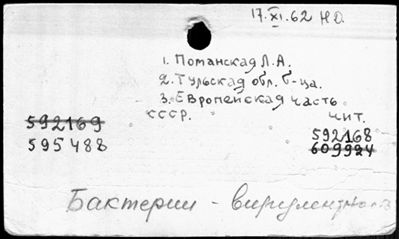 17.XI.62 НО
1. Поманская Л.А.
2. Тульская обл. б-ца.
3. Европейская часть
СССР. Чит.
592169
595488
592168
609924
Бактерии - вирулентность